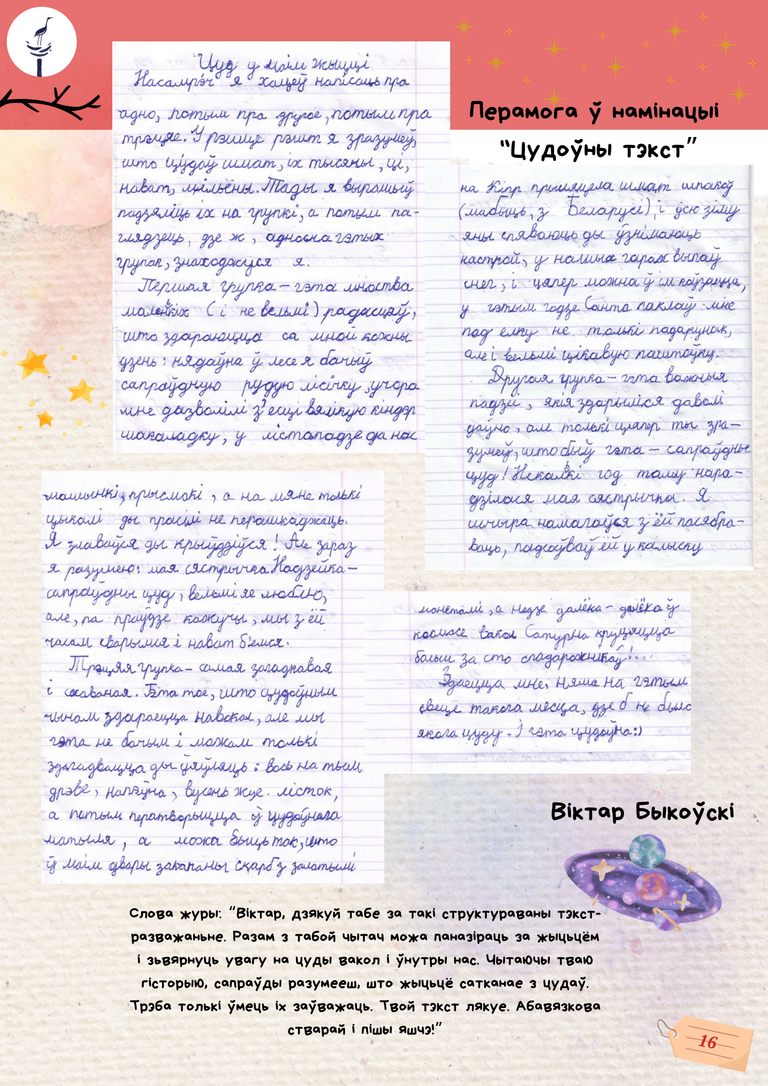 Перамога ў намінацыі
“Цудоўны тэкст”
Цуд у маім жыцці
Насамрэч я хацеў напісаць пра
адно, потым пра другое, потым пра
трэцяе. Урэшце рэшт я зразумеў,
што цудаў шмат, іх тысячы, ці,
нават, мільёны. Тады я вырашыў
падзяліць іх на групкі, а потым па-
глядзець, дзе ж, адносна гэтых
групак, знаходжуся я.
Першая групка – гэта мноства
маленькіх (і не вельмі) радасцяў,
што здараюцца са мной кожны
дзень: нядаўна ў лесе я бачыў
сапраўдную рудую лісічку, учора
мне дазволілі з’есці вялікую кіндэр
шакаладку, у лістападзе да нас
на Кіпр прыляцела шмат шпакоў
(мабыць, з Беларусі), і ўсю зіму
яны спяваюць ды ўзнімаюць
настрой, у нашых гарах выпаў
снег, і цяпер можна ў ім коўзацца,
у гэтым годзе Санта паклаў мне
под елку не толькі падарунак,
але і вельмі цікавую паштоўку.
Другая групка – гэта важныя
падзеі, якія здарыліся даволі
даўно, але толькі цяпер ты зра-
зумеў, што быў гэта – сапраўдны
цуд! Некалькі год таму нара-
дзілася мая сястрычка. Я
шчыра намагаўся з ёй пасябра-
ваць, падсоўваў ёй у калыску
машынкі, прысмакі, а на мяне толькі
цыкалі ды прасілі не перашкаджаць.
Я злаваўся ды крыўдзіўся! Але зараз
я разумею: мая сястрычка Надзейка –
сапраўдны цуд, вельмі яе люблю,
але, па праўдзе кажучы, мы з ёй
часам сварымся і нават б’емся.
Трэцяя групка – самая загадкавая
і схаваная. Гэта тое, што цудоўным
чынам здараецца навокал, але мы
гэта не бачым і можам толькі
здагадвацца ды ўяўляць: вось на тым
дрэве, напэўна, вусень жуе лісток,
а потым ператворыцца ў цудоўнага
матыля, а можа быць так, што
ў маім двары закапаны скарб з залатымі
манетамі, а недзе далёка – далёка ў
космасе вакол Сатурна круцяцца
больш за сто спадарожнікаў!...
Здаецца мне, няма на гэтым
свеце такога месца, дзе б не было
якога цуду. І гэта цудоўна:)
Віктар Быкоўскі
Слова журы: “Віктар, дзякуй табе за такі структураваны тэкст-
разважаньне. Разам з табой чытач можа паназіраць за жыцьцём
і зьвярнуць увагу на цуды вакол і ўнутры нас. Чытаючы тваю
гісторыю, сапраўды разумееш, што жыцьцё сатканае з цудаў.
Трэба толькі ўмець іх заўважаць. Твой тэкст лякуе. Абавязкова
ствараў і пішы яшчэ!”
16